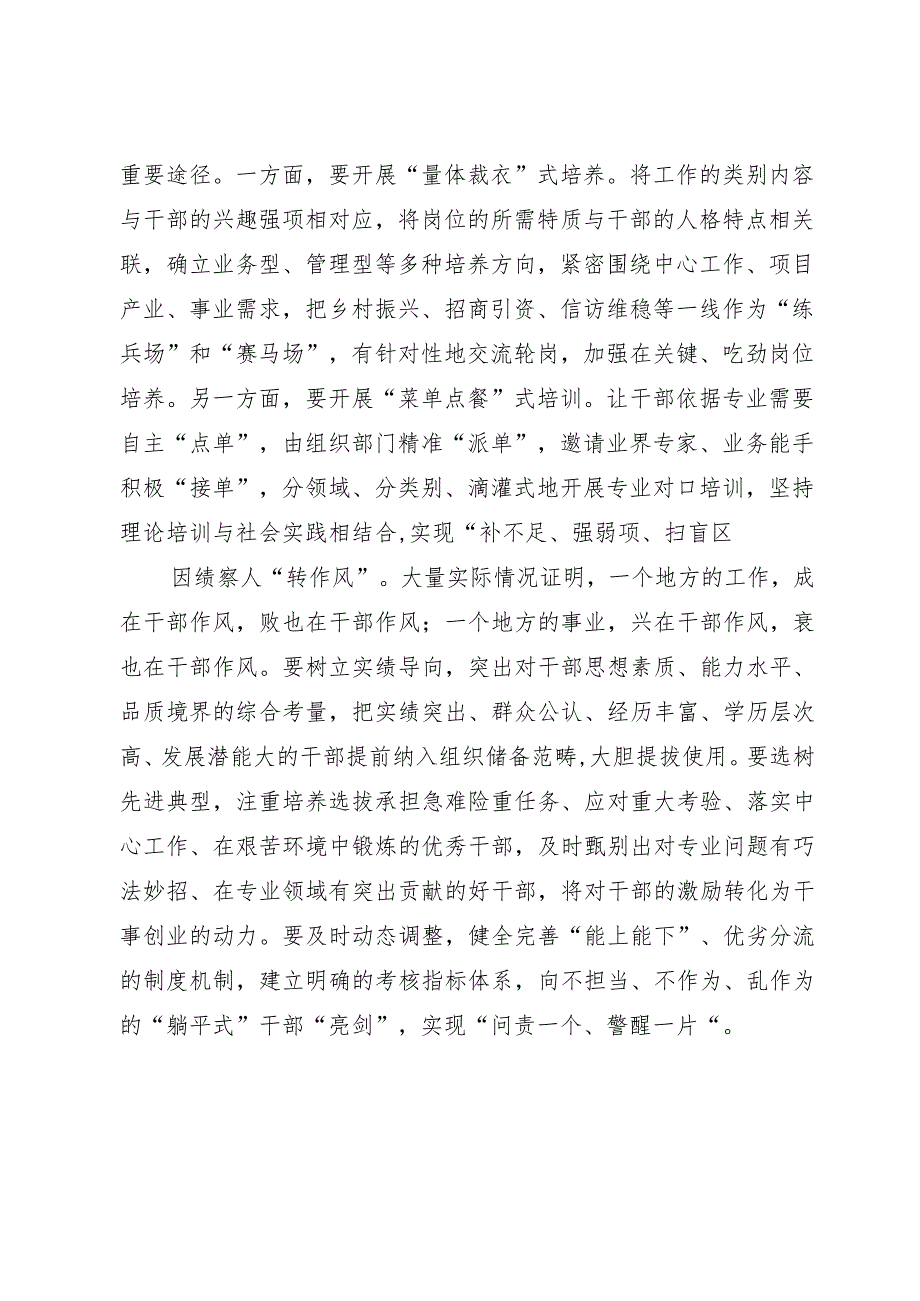 重要途径。一方面，要开展“量体裁衣”式培养。将工作的类别内容
与干部的兴趣强项相对应，将岗位的所需特质与干部的人格特点相关
联，确立业务型、管理型等多种培养方向，紧密围绕中心工作、项目
产业、事业需求，把乡村振兴、招商引资、信访维稳等一线作为“练
兵场”和“赛马场”，有针对性地交流轮岗，加强在关键、吃劲岗位
培养。另一方面，要开展“菜单点餐”式培训。让干部依据专业需要
自主“点单”，由组织部门精准“派单”，邀请业界专家、业务能手
积极“接单”，分领域、分类别、滴灌式地开展专业对口培训，坚持
理论培训与社会实践相结合,实现“补不足、强弱项、扫盲区
因绩察人“转作风”。大量实际情况证明，一个地方的工作，成
在干部作风，败也在干部作风；一个地方的事业，兴在干部作风，衰
也在干部作风。要树立实绩导向，突出对干部思想素质、能力水平、
品质境界的综合考量，把实绩突出、群众公认、经历丰富、学历层次
高、发展潜能大的干部提前纳入组织储备范畴,大胆提拔使用。要选树
先进典型，注重培养选拔承担急难险重任务、应对重大考验、落实中
心工作、在艰苦环境中锻炼的优秀干部，及时甄别出对专业问题有巧
法妙招、在专业领域有突出贡献的好干部，将对干部的激励转化为干
事创业的动力。要及时动态调整，健全完善“能上能下”、优劣分流
的制度机制，建立明确的考核指标体系，向不担当、不作为、乱作为
的“躺平式”干部“亮剑”，实现“问责一个、警醒一片“。